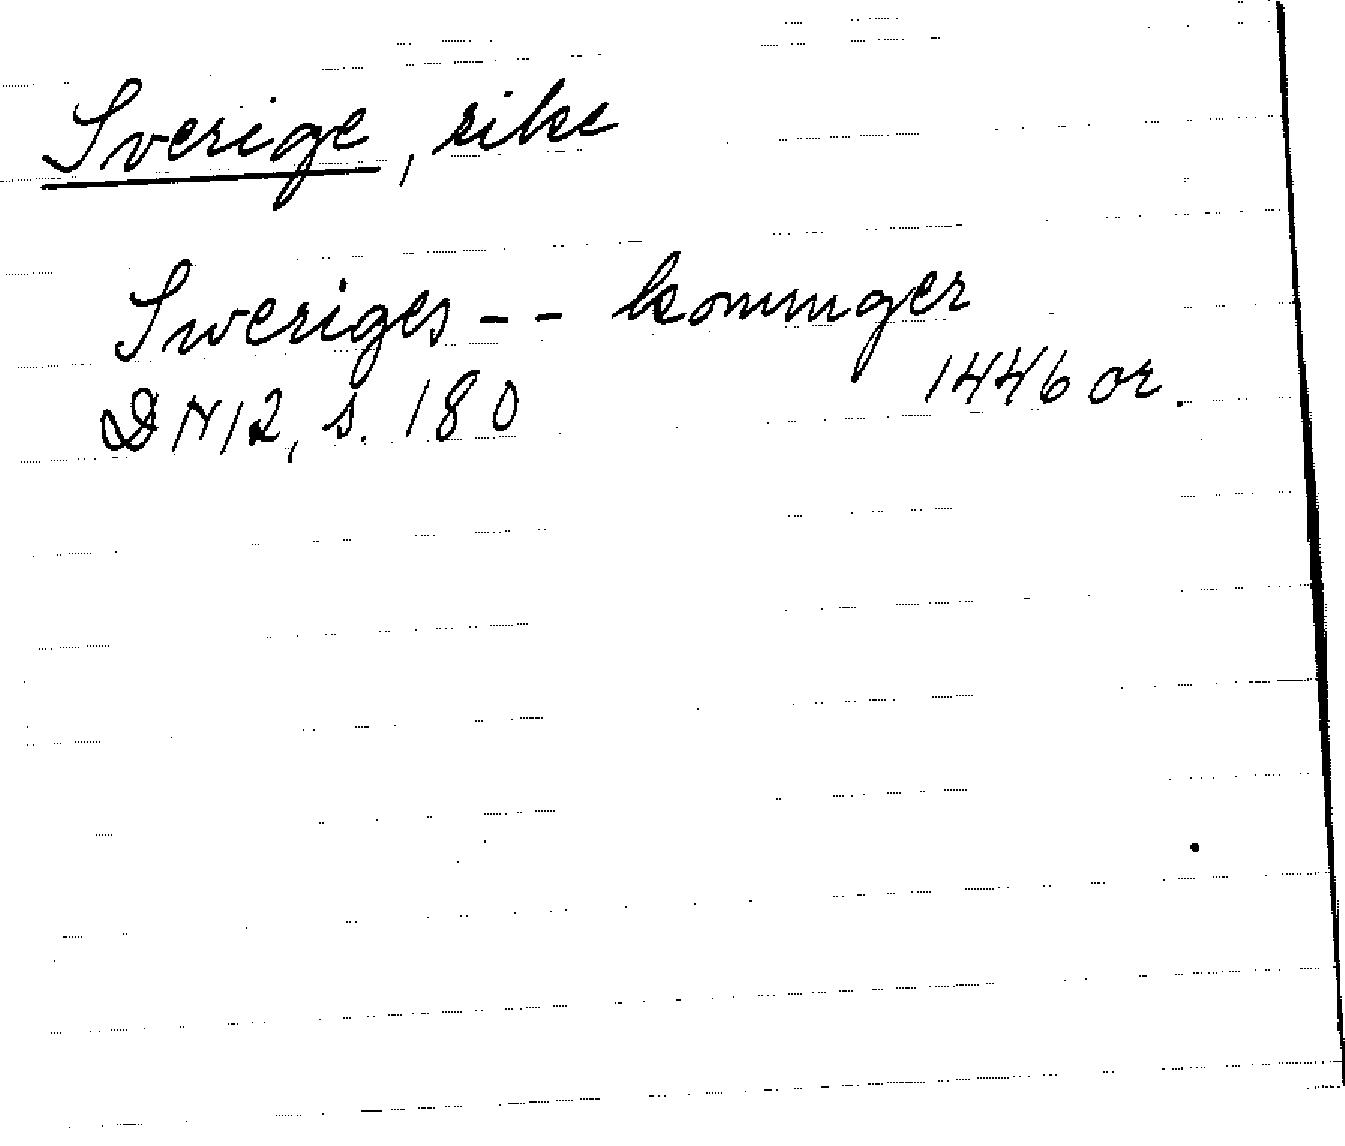 Sverige, rike
Sweriges -- konunger
1446 or.
DN12, s. 180